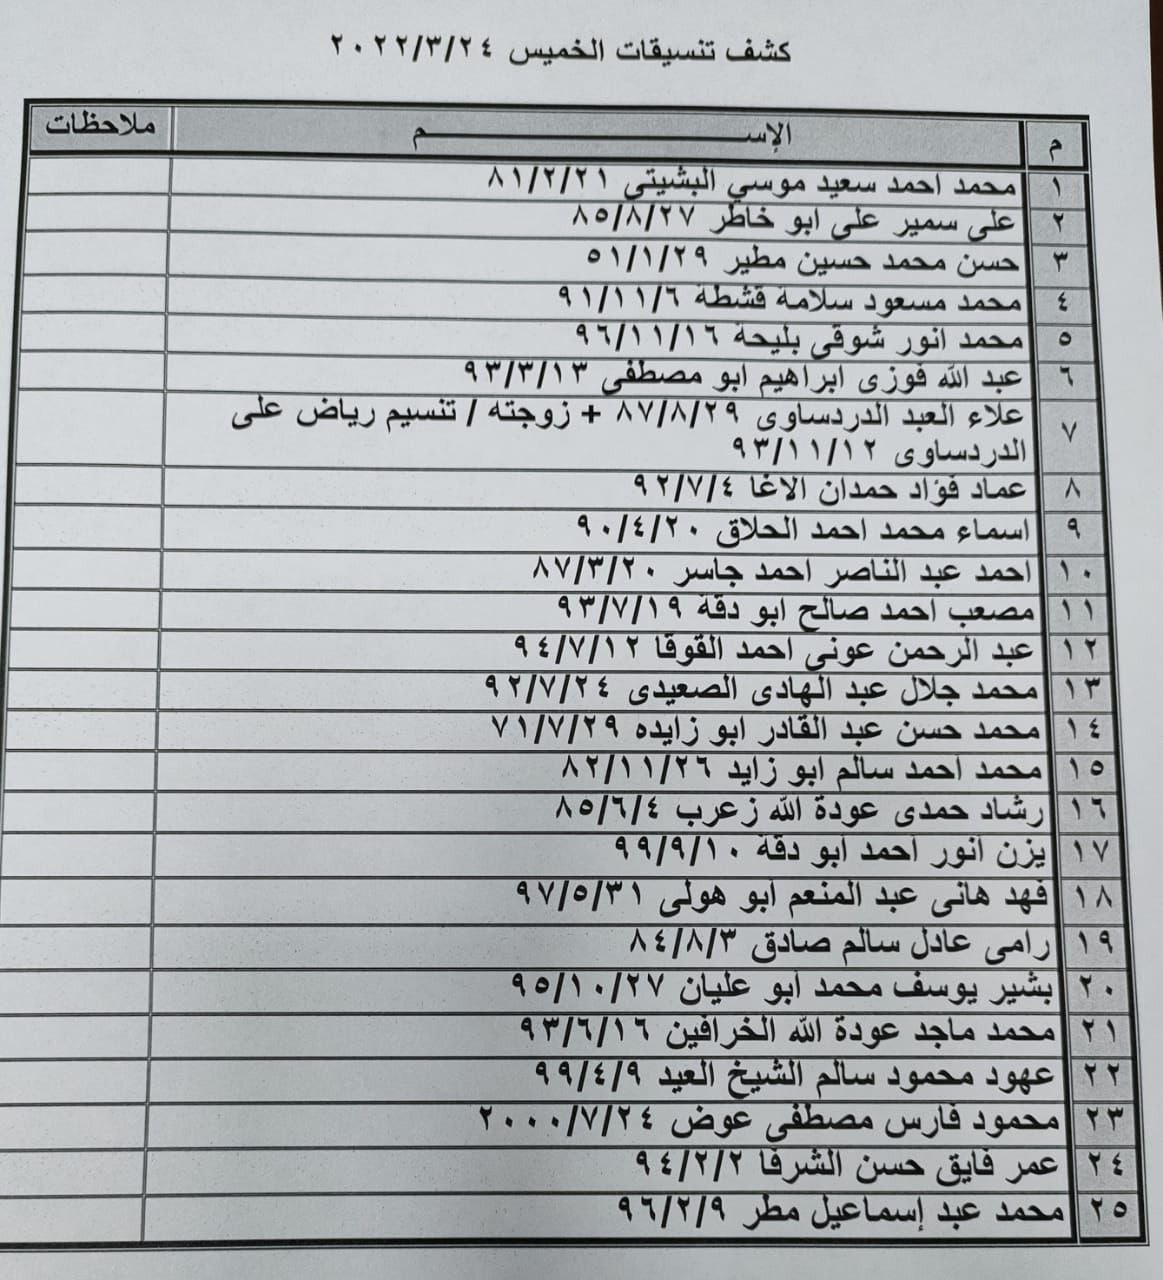 كشف تنسيقات الخميس ٢٠٢٢/٣/٢٤
م الإســـــــــم ملاحظات
١ محمد احمد سعيد موسي البشيتي ٨١/٢/٢١
٢ على سمير على ابو خاطر ٨٥/٨/٢٧
٣ حسن محمد حسين مطير ٥١/١/٢٩
٤ محمد مسعود سلامة قشطة ٩١/١١/٦
٥ محمد انور شوقي بليحة ٩٦/١١/١٦
٦ عبد الله فوزى ابراهيم ابو مصطفى ٩٣/٣/١٣
٧ علاء العبد الدردساوى ٨٧/٨/٢٩ + زوجته / تنسيم رياض على
الدردساوى ٩٣/١١/١٢
٨ عماد فؤاد حمدان الاغا ٩٢/٧/٤
٩ اسماء محمد احمد الحلاق ٩٠/٤/٢٠
١٠ احمد عبد الناصر احمد جاسر ٨٧/٣/٢٠
١١ مصعب احمد صالح ابو دقة ٩٣/٧/١٩
١٢ عبد الرحمن عوني احمد القوقا ٩٤/٧/١٢
١٣ محمد جلال عبد الهادى الصعيدى ٩٢/٧/٢٤
١٤ محمد حسن عبد القادر ابو زايده ٧١/٧/٢٩
١٥ محمد احمد سالم ابو زايد ٨٢/١١/٢٦
١٦ رشاد حمدى عودة الله زعرب ٨٥/٦/٤
١٧ يزن انور احمد ابو دقة ٩٩/٩/١٠
١٨ فهد هانى عبد المنعم ابو هولى ٩٧/٥/٣١
١٩ رامى عادل سالم صادق ٨٤/٨/٣
٢٠ بشير يوسف محمد ابو عليان ٩٥/١٠/٢٧
٢١ محمد ماجد عودة الله الخرافين ٩٣/٦/١٦
٢٢ عهود محمود سالم الشيخ العيد ٩٩/٤/٩
٢٣ محمود فارس مصطفى عوض ٢٠٠٠/٧/٢٤
٢٤ عمر فايق حسن الشرفا ٩٤/٢/٢
٢٥ محمد عبد إسماعيل مطر ٩٦/٢/٩